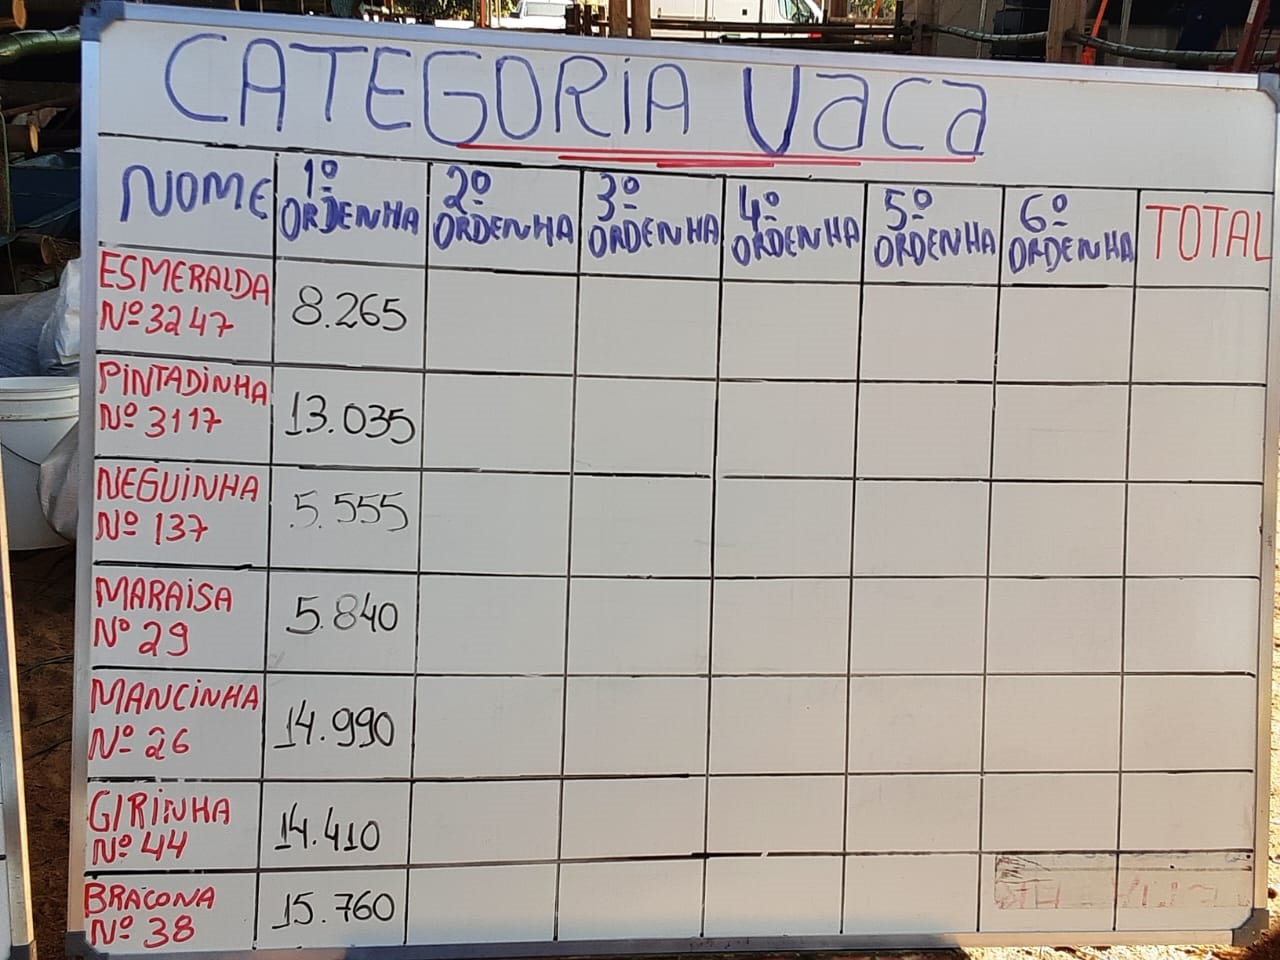 CATEGORIA VACA
NOME 1º ORDENHA 2º ORDENHA 3º ORDENHA 4º ORDENHA 5º ORDENHA 6º ORDENHA TOTAL
ESMERALDA
Nº 3247 8.265
PINTADINHA
Nº 3117 13.035
NEGUINHA
Nº 137 5.555
MARAISA
Nº 29 5.840
MANCINHA
Nº 26 14.990
GIRINHA
Nº 44 14.410
BRAÇONA
Nº 38 15.760